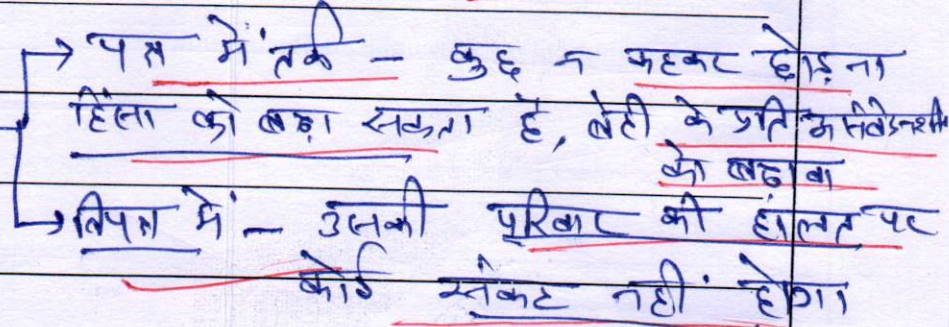 → पक्ष में तर्क – कुछ न कहकर छोड़ना
हिंसा को बढ़ा सकता है, बेटी के प्रति असंवेदनशील
को बढ़ावा
→ विपक्ष में – उसकी परिवार की हालत पर
कोई संकट नहीं होगा